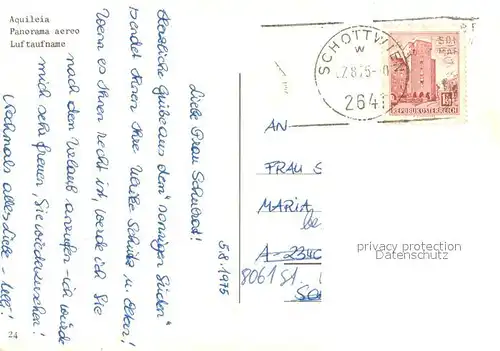 Aquileia
Panorama aereo
Luftaufname
5.8.1975
Liebe Frau Schulrat!
Herzliche Grüße aus dem "sonnigen Süden"
sendet Ihnen Ihre Ulrike Schütz u. Eltern!
Wenn es Ihnen recht ist, werde ich Sie
nach dem Urlaub anrufen - ich würde
mich sehr freuen, Sie wiederzusehen!
Nochmals alles Liebe -
24
SCHOTTWIEN
W
2641
REPUBLIK ÖSTERREICH
AN
FRAU S
MARIA
be
A-23
8061 St.
privacy protection
Datenschutz